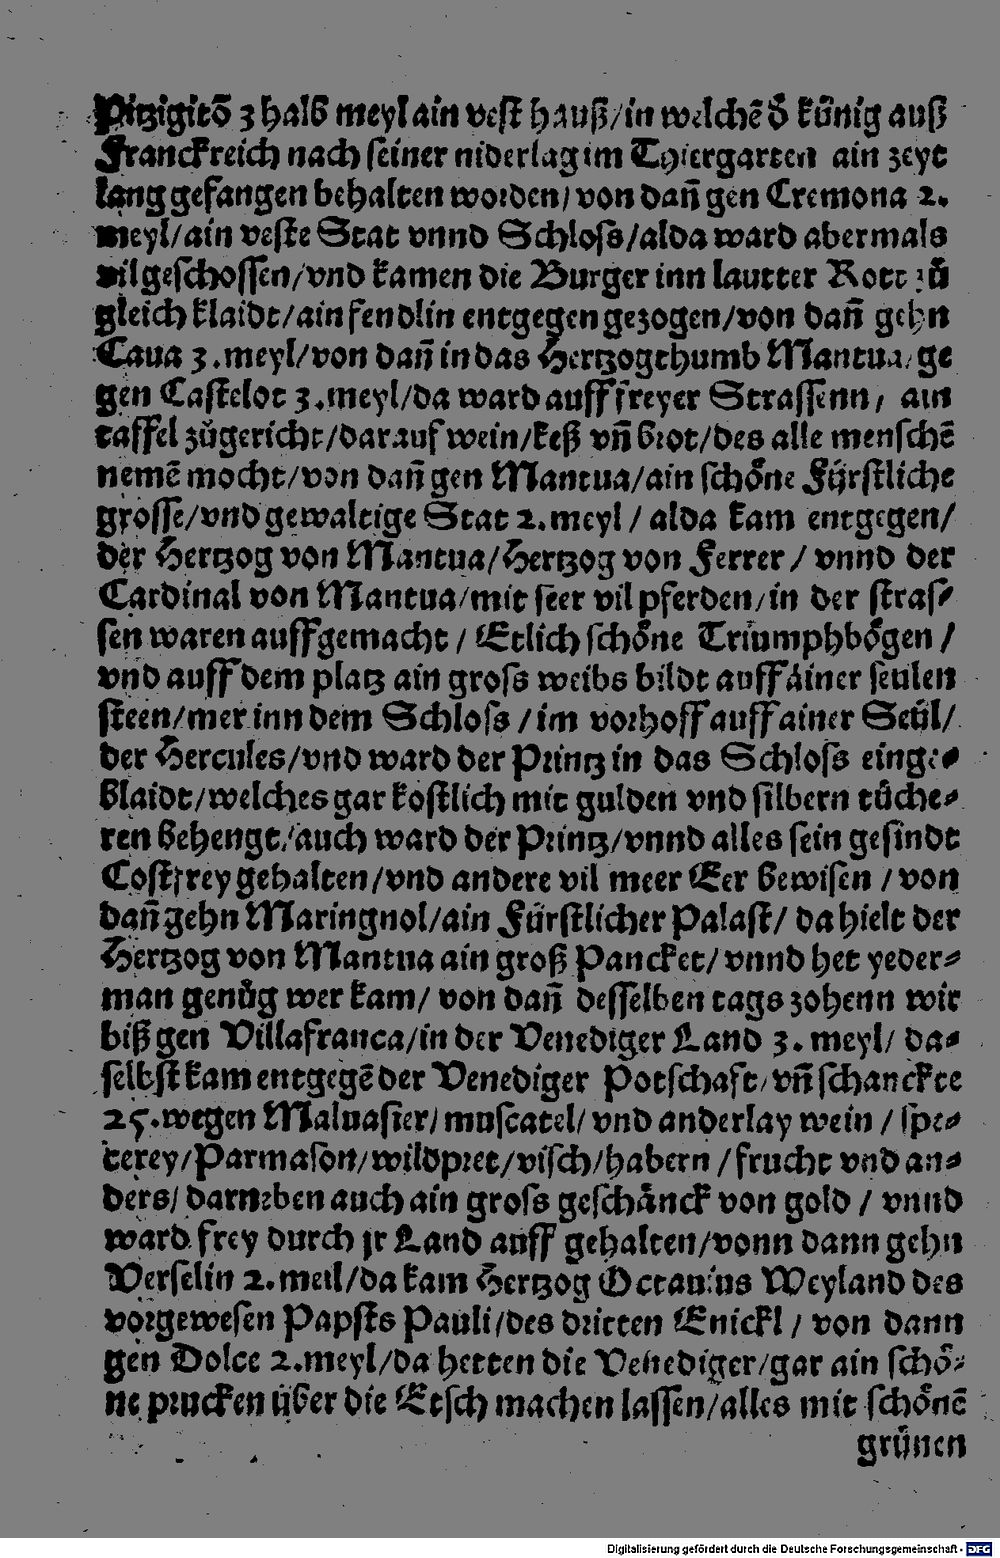 Pitzigitō 3 halb meyl ain vest hauß/in welchē d̄ künig auß
Franckreich nach seiner niderlag im Thiergarten ain zeyt
lang gefangen behalten worden/von dañ gen Cremona 2.
meyl/ain veste Stat vnnd Schloss/alda ward abermals
vil geschossen/vnd kamen die Burger inn lautter Rott zů
gleich klaidt/ain fendlin entgegen gezogen/von dañ gehn
Caua 3.meyl/von dañ in das Hertzogthumb Mantua/ge
gen Castelot 3.meyl/da ward auff freyer Strassenn/ ain
taffel zůgericht/darauf wein/keß vñ brot/des alle menschē
nemē mocht/von dañ gen Mantua/ain schöne Fürstliche
grosse/vnd gewaltige Stat 2.meyl / alda kam entgegen/
der Hertzog von Mantua/Hertzog von Ferrer / vnnd der
Cardinal von Mantua/mit seer vil pferden/in der stras⸗
sen waren auffgemacht / Etlich schöne Triumphbögen /
vnd auff dem platz ain gross weibs bildt auff ainer seulen
steen/mer inn dem Schloss /im vorhoff auff ainer Seül/
der Hercules/vnd ward der Printz in das Schloss einge⸗
blaidt/welches gar kostlich mit gulden vnd silbern tüche⸗
ren behengt/auch ward der Printz/vnnd alles sein gesindt
Costfrey gehalten/vnd andere vil meer Eer bewisen / von
dañ gehn Maringnol/ain Fürstlicher Palast/ da hielt der
Hertzog von Mantua ain groß Pancket/ vnnd het yeder⸗
man genůg wer kam/ von dañ desselben tags zohenn wir
biß gen Villafranca/in der Venediger Land 3. meyl/ da⸗
selbst kam entgegē der Venediger Potschaft/vñ schanckte
25.wegen Maluasier/muscatel/ vnd anderlay wein / spe⸗
cerey/Parmason/wildpret/visch/habern /frucht vnd an⸗
ders/ darneben auch ain gross geschänck von gold / vnnd
ward frey durch jr Land auff gehalten/vonn dann gehn
Verselin 2.meil/da kam Hertzog Octauius Weyland des
vorgewesen Papsts Pauli/des dritten Enickl / von dann
gen Dolce 2.meyl/da hetten die Venediger/gar ain schö⸗
ne prucken über die Etsch machen lassen/alles mit schönē
grünen
Digitalisierung gefördert durch die Deutsche Forschungsgemeinschaft - DFG